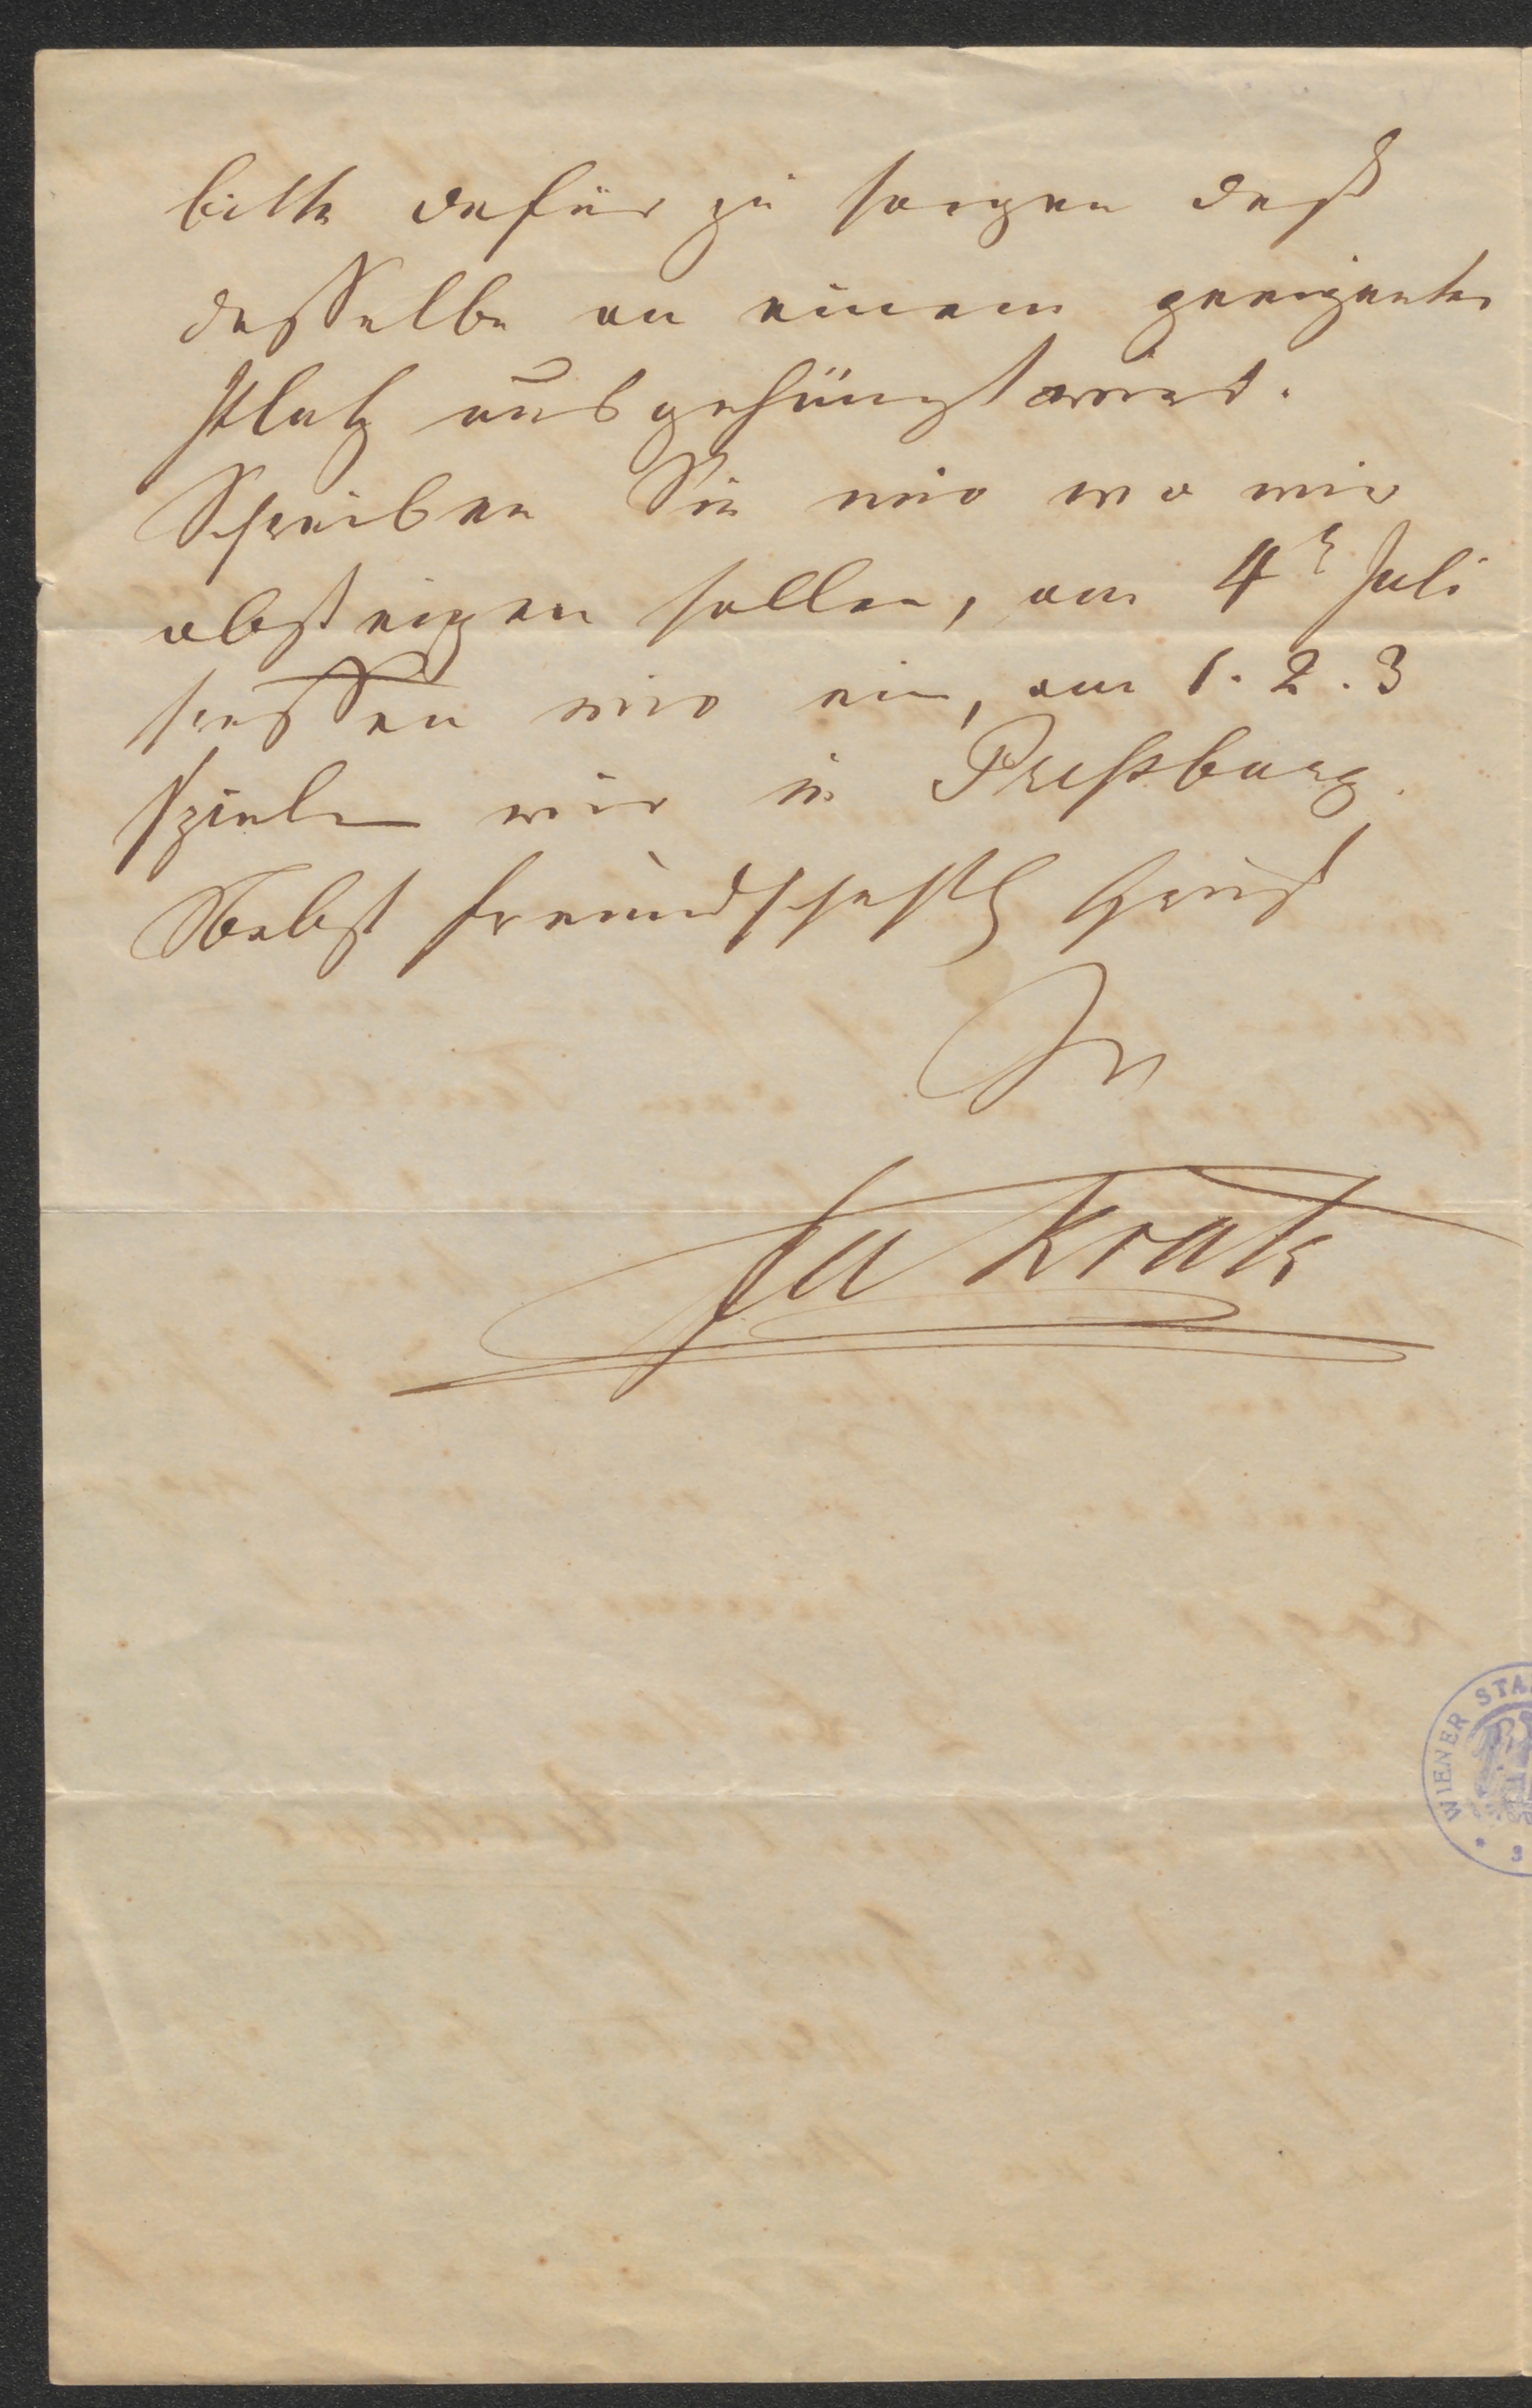 bitte dafür zu sorgen daß
dasselbe an einem geeigneten
Platz ausgehängt wird.
Schreiben Sie mir wo wir
absteigen sollen, am 4t Juli
treffen wir ein, am 1. 2. 3
spielen wir in Preßburg.
Nebst freundschaftl Gruß
Ihr
WIENER STA